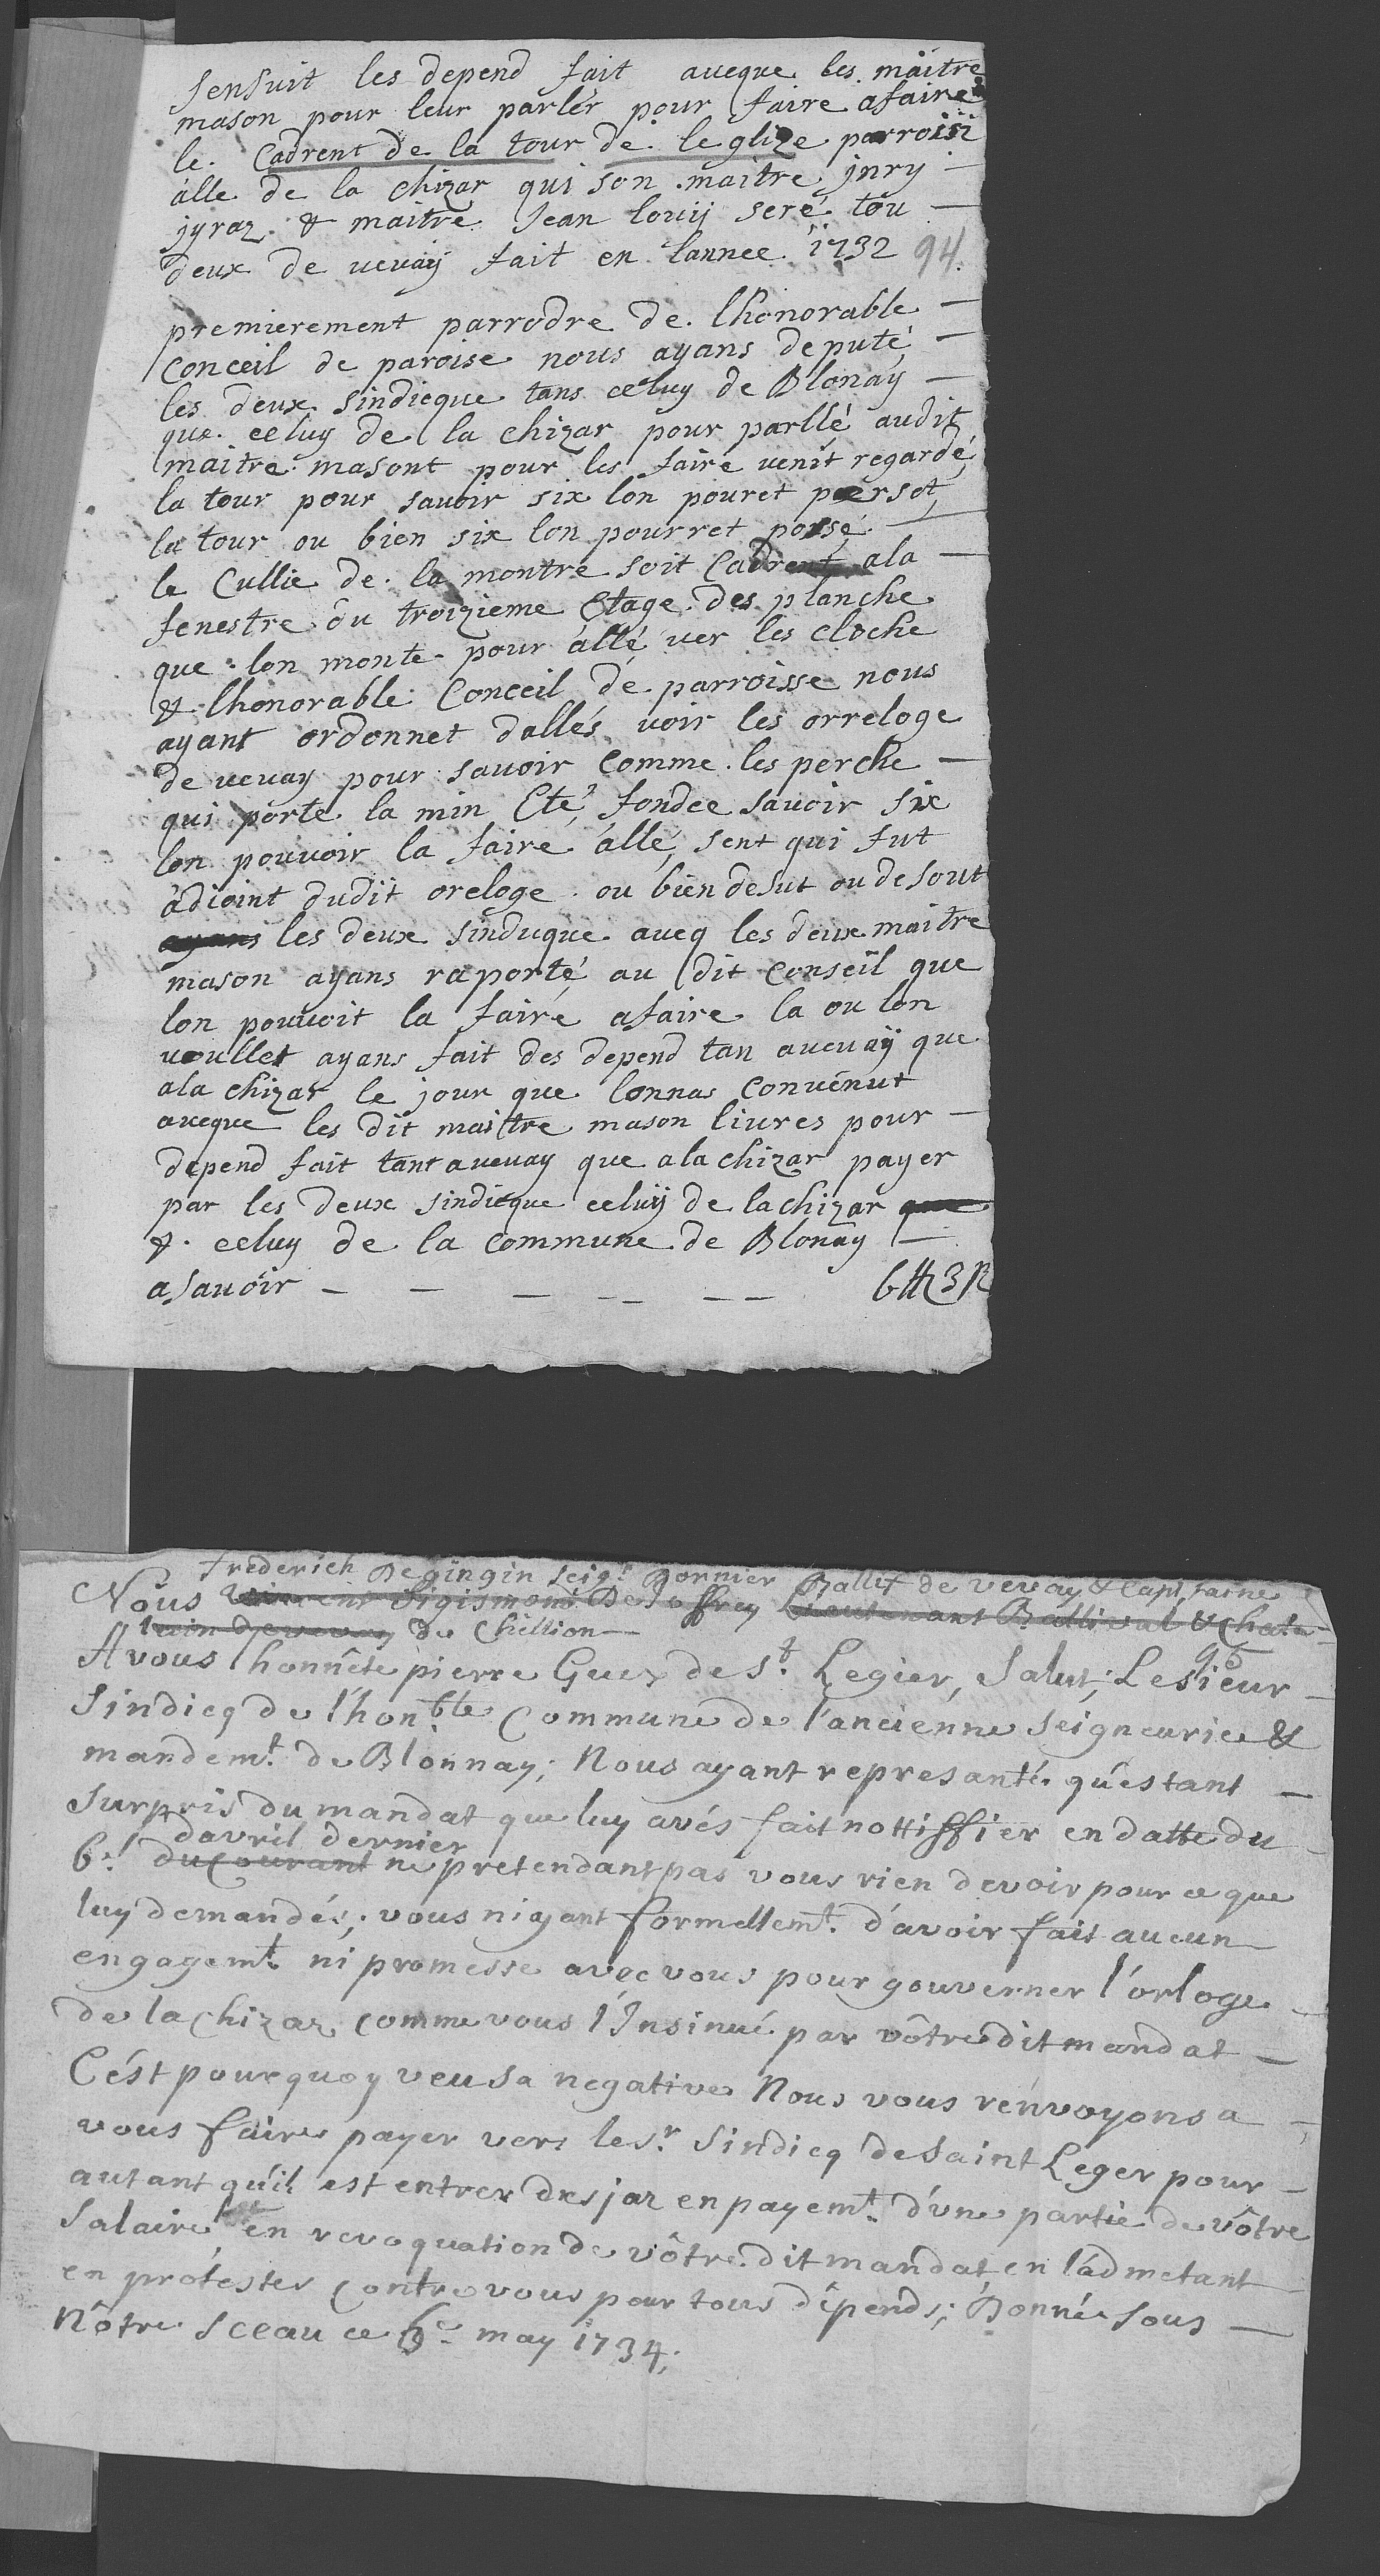 sensuit les depend fait aveque les maitre
mason pour leur parlér pour faire afaire
le Cadrent de la tour de leglize parroisi
alle de la chizar qui son maitre jnry
jyraz & maitre Jean louij seré tou
deux de vevaÿ fait en lannee 1732
94.
premierement parrodre de lhonorable
conceil de paroise nous ayans deputé
les deux sindicque tans celuy de Blonaÿ
que celuy de la chizar pour parllé audit
maitre masont pour les faire venit regardé
la tour pour savoir six lon pouret persot
la tour ou bien six lon pourret possé
le Cullie de la montre soit Cadrent ala
fenestre du troizieme Etage des planche
que lon monte pour allé ver les cloche
& lhonorable Conceil de parroisse nous
ayant ordonnet dallés voir les orreloge
de vevay pour savoir comme les perche
qui porte la min Eté fondee savoir six
lon pouvoir la faire allé sent qui fut
adioint dudit oreloge ou bien desut ou desout
ayans les deux sinduque aveq les deux maitre
mason ayans raporté au dit conseil que
lon pouvoit la faire afaire la ou lon
voullet ayans fait des depend tan avevaÿ que
ala chizar le jour que lonnas convenut
aveque les dit maitre mason livres pour
depend fait tant avevay que ala chizar payer
par les deux sindicque celuÿ de lachizar que
& celuy de la commune de Blonay
asavoir 6 ₶ 3 ß
frederich Degingin seigr. Bornier Ballif de vevay & Capitaine
Nous Sigismond De Joffrey Lieutenant Ballival & Chate
lain de vevay de Chillion
95
A vous lhonnête pierre Guex de st. Legier, Salut; Le sieur
Sindicq de l'honble. Commune de l'ancienne Seigneurie &
mandemt. de Blonnay; Nous ayant represanté qu'estant
surpris du mandat que luy avés fait nottiffier en datte du
davril dernier
6e. du Courant ne pretendant pas vous rien devoir pour ce que
luy demandés; vous niyant formellemt. d'avoir fais aucun
engagemt. ni promesse avec vous pour gouverner l'orloge
de la chizaz comme vous l'Insinué par vôtre dit mandat
C'ést pourquoy veu sa negative Nous vous renvoyons a
vous faire payer vers le sr. Sindicq de Saint Leger pour
autant qu'il est entrer desjaz en payemt. d'une partie de vôtre
salaire, en revoquation de vôtre dit mandat, en l'admetant
en protester contre vous pour tous dépends; Donné sous
Nôtre sceau ce 6e. may 1734;